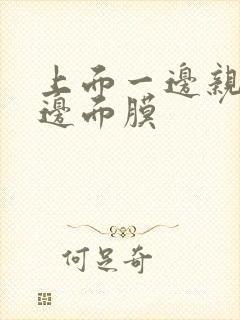 上而一邊親
邊而膜
何足奇